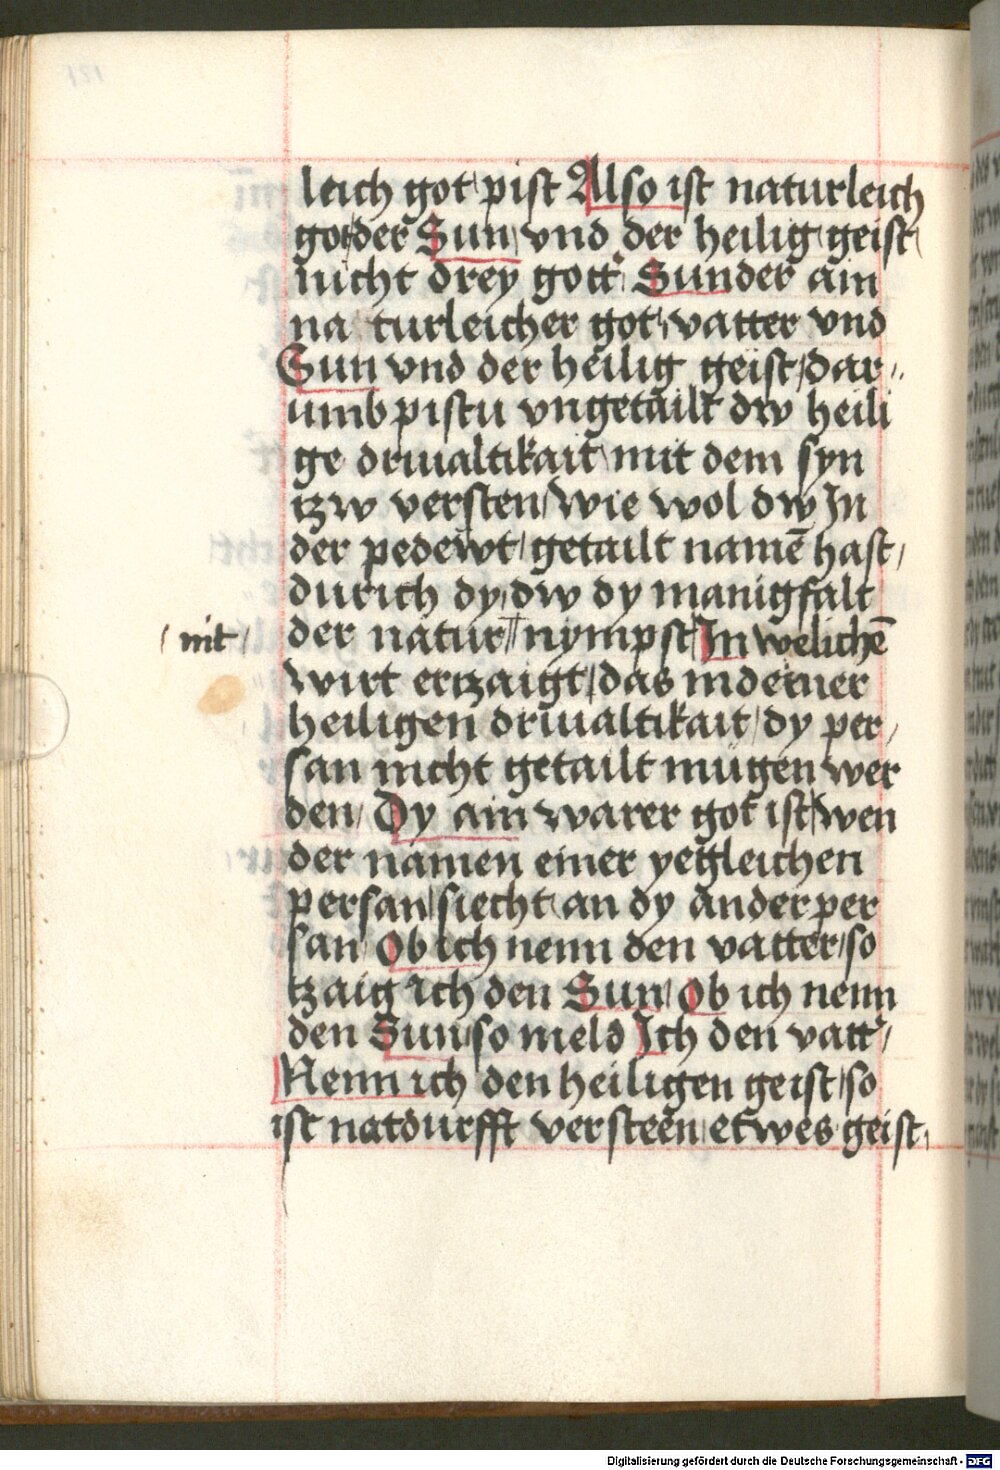 leich got pist Also ist naturleich
got / der Sun / vnd der heilig geist /
nicht drey gott̉ Sunder ain
na turleicher got / vatter vnd
Sun vnd der heilig geist / dar //
umb pistu vngetailt dw heili
ge driualtikait mit dem syn
tzw versten / Wie wol dw In
der pedewt / getailt namē hast /
durich dy / dw dy manigfalt
/ nit / der natur / nympst / In welichē
wirt ertzaigt / das in deiner
heiligen driualtikait / dy per /
san nicht getailt mugen wer
den / Dy ain warer got ist / wen
der namen einer yegleichen
persan / siecht an dy ander per
san Ob ich nenn den vatter / so
tzaig ich den Sun / Ob ich nenn
den Sun / so meld Ich den vatt̉ /
Nenn ich den heiligen geist / so
ist natdurfft versteen etwes geist /
Digitalisierung gefördert durch die Deutsche Forschungsgemeinschaft - DFG